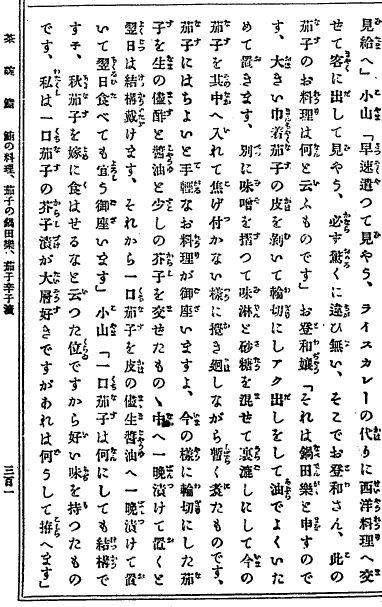 見給へ」小山「早速遣つて見やう、ライスカレーの代りに西洋料理へ交
せて客に出して見やう、必ず驚くに違ひ無い、そこでお登和さん、此の
茄子のお料理は何と云ふものです」お登和孃「それは鍋田樂と申すので
す、大きい巾着茄子の皮を剝いて輪切にしアク出しをして油でよくいた
めて置きます、別に味噌を摺つて味淋と砂糖を混ぜて裏漉しにして今の
茄子を其中へ入れて焦げ付かない樣に攪き廻しながら暫く煑たものです、
茄子にはちよいと手輕なお料理が御座いますよ、今の樣に輪切にした茄
子を生の儘酢と醬油と少しの芥子を交せたものゝ中へ一晩漬けて置くと
翌日は結構戴けます、それから一口茄子を皮の儘生醬油へ一晩漬けて置
いて翌日食べても宜う御座います」小山「一口茄子は何にしても結構で
すネ、秋茄子を嫁に食はせるなと云つた位ですから好い味を持つたもの
です、私は一口茄子の芥子漬が大層好きですがあれは何うして拵へます」
茶碗鮨 鮨の料理、茄子の鍋田樂、茄子辛子漬
三百一